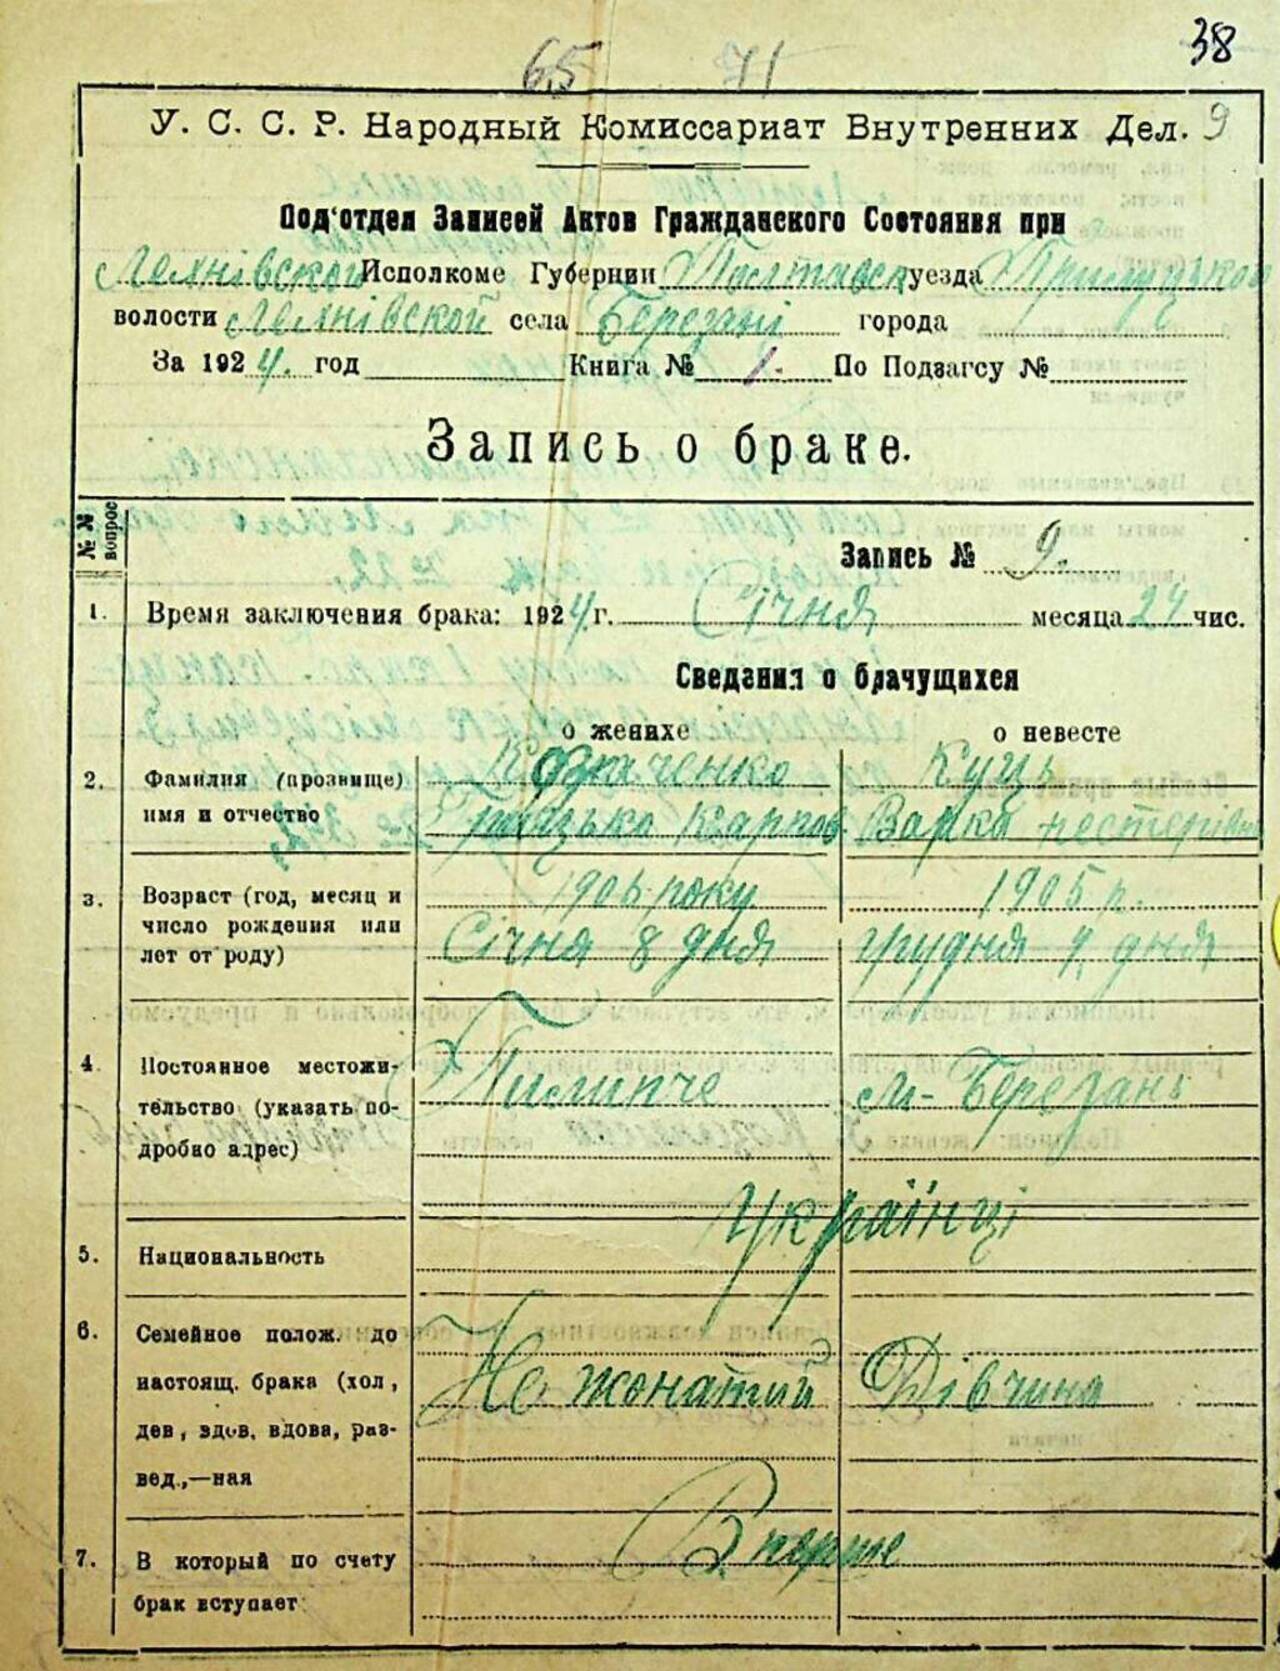 38
65 71
У. С. С. Р. Народный Комиссариат Внутренних Дел. 9
Под'отдел Записей Актов Гражданского Состояния при
Исполкоме Губернии Полтавск уезда Прилуцькой
волости села Березані города
За 1924. год Книга № 1. По Подзагсу №
Запись о браке.
№ № вопрос
Запись № 9.
1. Время заключения брака: 1924 г. Січня месяца 24 чис.
Сведения о брачущихся
о женихе о невесте
2. Фамилия (прозвище) имя и отчество
Козаченко
Грицько Карпов.
Куць
Варка Нестерівна
3. Возраст (год, месяц и число рождения или лет от роду)
1906 року
Січня 8 дня
1905 р.
грудня 4 дня
4. Постоянное местожи-
тельство (указать по-
дробно адрес)
Пилипче
м- Березань
5. Национальность
Українці
6. Семейное полож. до
настоящ. брака (хол,
дев, вдов, вдова, раз-
вед.,—ная
Не жонатий
Дівчина
7. В который по счету
брак вступает
Вперше